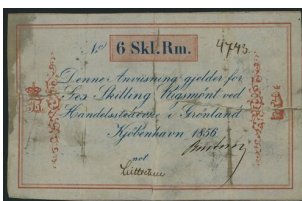 No 6 Skl. Rm. 4745
Denne Anviisning gjelder for
Sex Skilling Rigsmønt ved
Handelsstederne i Grønland.
Kjöbenhavn 1856.
not